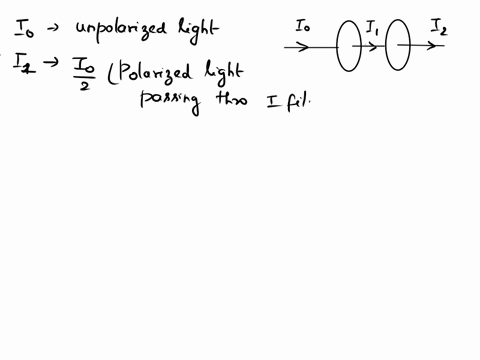 I₀ → unpolarized light
I₁ → I₀/2 (Polarized light
passing thro I fil.
I₀ I₁ I₂